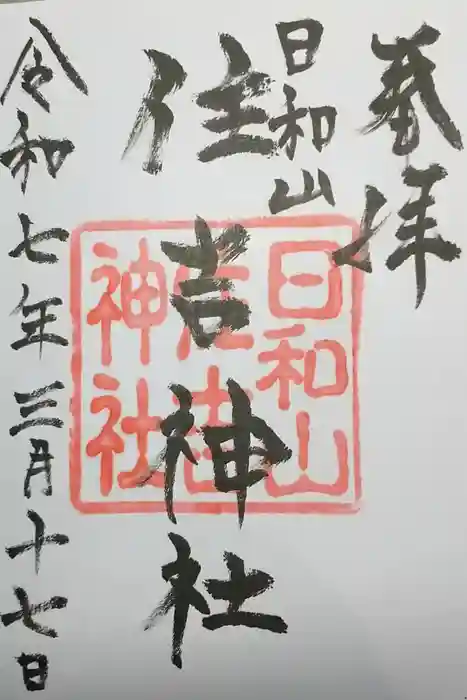 奉拝
日和山
住吉神社
日和山
住吉
神社
令和七年三月十七日